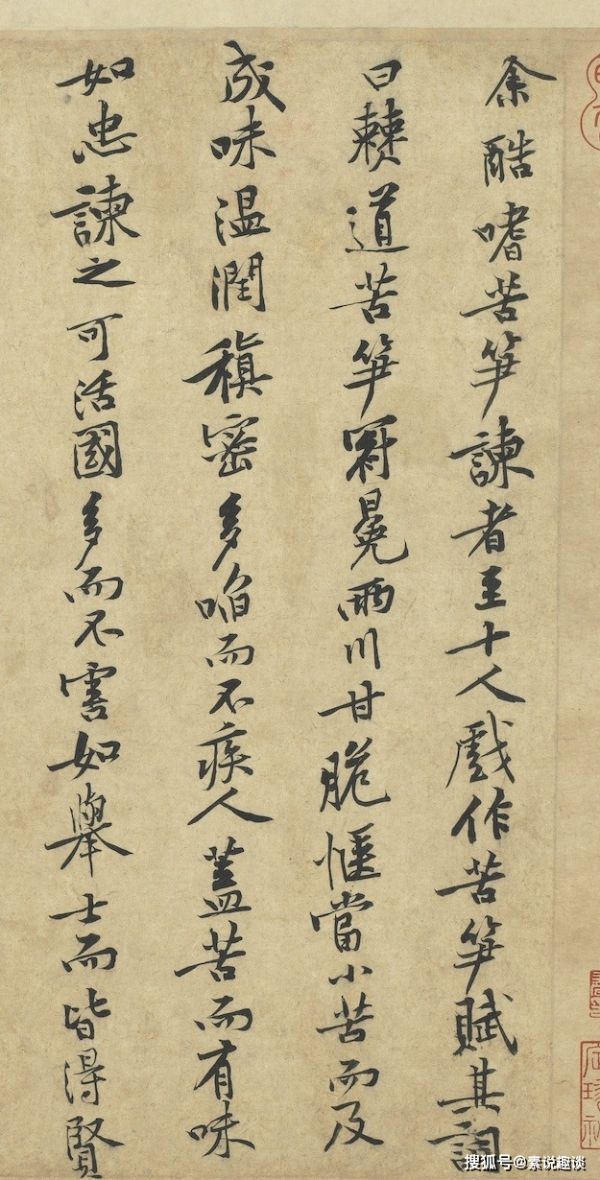 余酷嗜苦笋諫者至十人戲作苦笋賦其詞
曰僰道苦笋冠冕兩川甘脆愜當小苦而反
成味溫潤稹密多啗而不疾人蓋苦而有味
如忠諫之可活國多而不害如舉士而皆得賢
搜狐号@素说趣谈